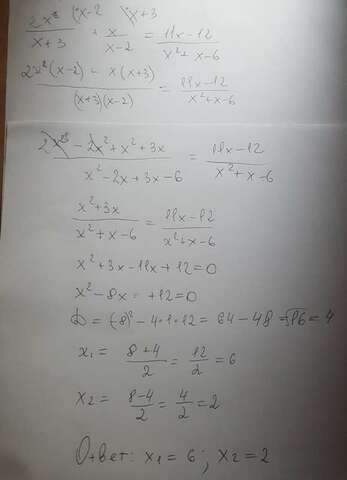 2x² (x-2 \x+3
—— + —— = ——
x+3 x-2 x²+x-6
x 11x-12
2x²(x-2) + x(x+3) / (x+3)(x-2) = 11x-12 / x²+x-6
2x³ - 2x² + x² + 3x / x² - 2x + 3x - 6 = 11x-12 / x²+x-6
x²+3x / x²+x-6 = 11x-12 / x²+x-6
x²+3x-11x+12=0
x²-8x = +12=0
D = (-8)² - 4·1·12 = 64-48 = √16 = 4
x₁ = 8+4 / 2 = 12 / 2 = 6
x₂ = 8-4 / 2 = 4 / 2 = 2
Ответ: x₁ = 6 ; x₂ = 2